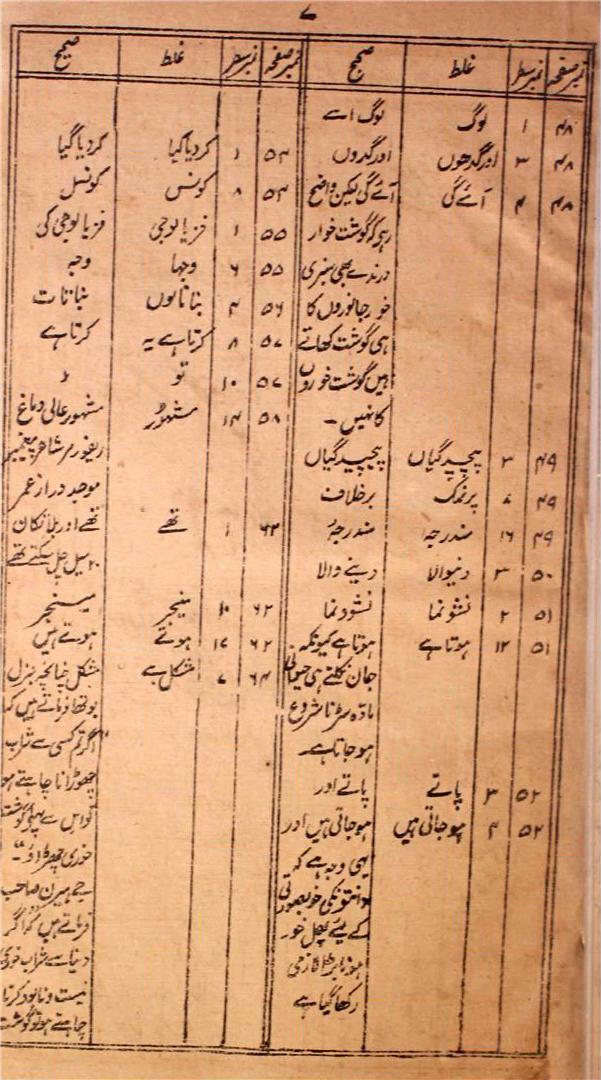 ۷
نمبر صفحہ نمبر سطر غلط صحیح نمبر صفحہ نمبر سطر غلط صحیح
۴۸ ۱ لوگ لوگ اسے
۴۸ ۳ اور گدھوں اور گدوں
۴۸ ۴ آئے گی آئے گی لیکن واضح
رہی کہ گوشت خوار
درندے بھی سبزی
خور جانوروں کا
ہی گوشت کھاتے
ہیں گوشت خوروں
کا نہیں ۔
۴۹ ۳ پیچیدگیاں پیچیدگیاں
۴۹ پر نمک برخلاف
۴۹ ۱۶ مندرجہ مندرجۂ
۵۰ ۳ دنیوالا دینے والا
۵۱ ۲ نشو نما نشو و نما
۵۱ ۱۲ ہوتا ہے ہوتا ہے کیونکہ
جان نکلتے ہی حیوانی
مادّہ سڑنا شروع
ہو جاتا ہے۔
۵۲ ۳ پاتے پاتے اور
۵۲ ۴ ہو جاتی ہیں ہو جاتی ہیں اور
یہی وجہ ہے کہ
خوبصورتی
کے لیئے پھل خور
ہونا
رکھا گیا ہے
۵۴ ۱ کردیا گیا کردیا گیا
۵۴ ۸ کونس کونسل
۵۵ ۱ فزیالوجی فزیالوجی کی
۵۵ ۶ وجہا وجہ
۵۶ ۴ بناتاتوں نباتات
۵۷ ۸ کرتا ہے یہ کرتا ہے
۵۷ ۱۰ تو
۵۸ ۱۴ مشہور مشہور عالی دماغ
موجد دراز عمر
۶۲ ۱ تھے تھے اور بلا تکان
۲۰ میل چل سکتے تھے
۶۲ ۱۰ منیجر مینیجر
۶۲ ۱۷ ہوتے ہوتے ہیں
۶۴ ۷ مشکل ہے مشکل چنانچہ جنرل
بوتھ فرماتے ہیں کہ
"اگر تم کسی سے شراب
چھوڑانا چاہتے ہو
تو اس سے پہلے گوشت
خوری چھڑاؤ"۔
صاحب
فرماتے ہیں کہ اگر
دنیا سے شراب خوری
نیست و نابود کرنا
چاہتے ہو تو گوشت